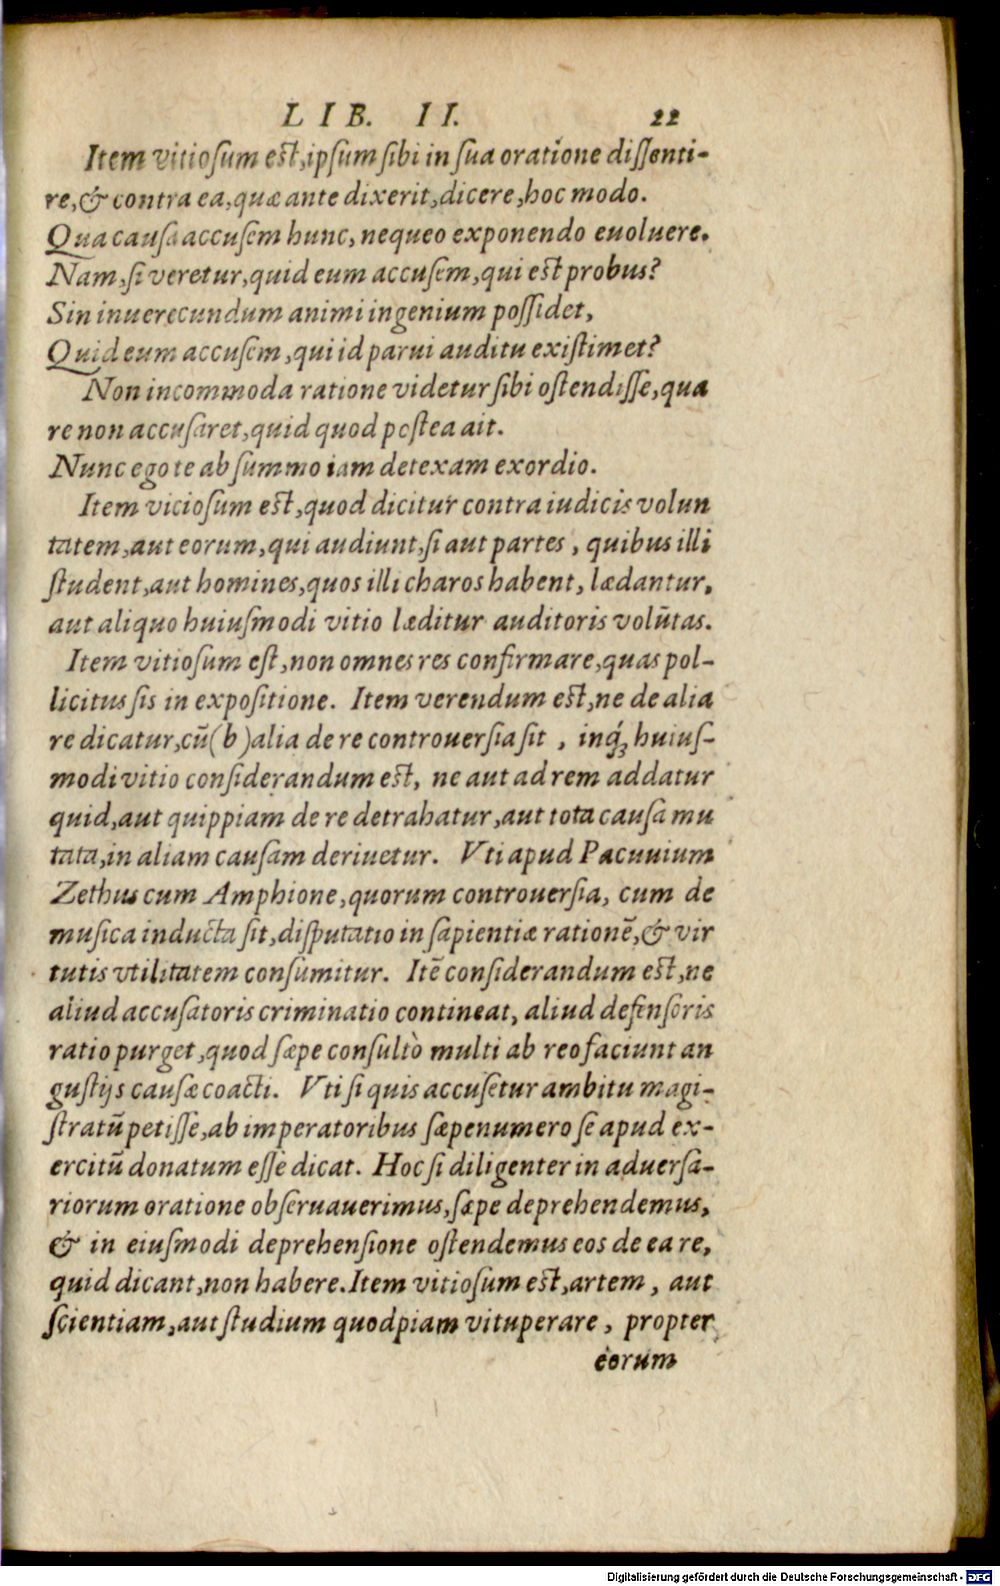 LIB. II. 22
Item vitiosum est, ipsum sibi in sua oratione dissenti-
re, & contra ea, quæ ante dixerit, dicere, hoc modo.
Qua causa accusem hunc, nequeo exponendo euoluere.
Nam, si veretur, quid eum accusem, qui est probus?
Sin inuerecundum animi ingenium possidet,
Quid eum accusem, qui id parui auditu existimet?
Non incommoda ratione videtur sibi ostendisse, qua
re non accusaret, quid quod postea ait.
Nunc ego te ab summo iam detexam exordio.
Item viciosum est, quod dicitur contra iudicis volun
tatem, aut eorum, qui audiunt, si aut partes, quibus illi
student, aut homines, quos illi charos habent, lædantur,
aut aliquo huiusmodi vitio læditur auditoris volūtas.
Item vitiosum est, non omnes res confirmare, quas pol-
licitus sis in expositione. Item verendum est, ne de alia
re dicatur, cū (b) alia de re controuersia sit, inq́ꝫ huius-
modi vitio considerandum est, ne aut ad rem addatur
quid, aut quippiam de re detrahatur, aut tota causa mu
tata, in aliam causam deriuetur. Vti apud Pacuuium
Zethus cum Amphione, quorum controuersia, cum de
musica inducta sit, disputatio in sapientiæ rationē, & vir
tutis vtilitatem consumitur. Itē considerandum est, ne
aliud accusatoris criminatio contineat, aliud defensoris
ratio purget, quod sæpe consultò multi ab reo faciunt an
gustijs causæ coacti. Vti si quis accusetur ambitu magi-
stratū petisse, ab imperatoribus sæpenumero se apud ex-
ercitū donatum esse dicat. Hoc si diligenter in aduersa-
riorum oratione obseruauerimus, sæpe deprehendemus,
& in eiusmodi deprehensione ostendemus eos de ea re,
quid dicant, non habere. Item vitiosum est, artem, aut
scientiam, aut studium quodpiam vituperare, propter
eorum
Digitalisierung gefördert durch die Deutsche Forschungsgemeinschaft - DFG